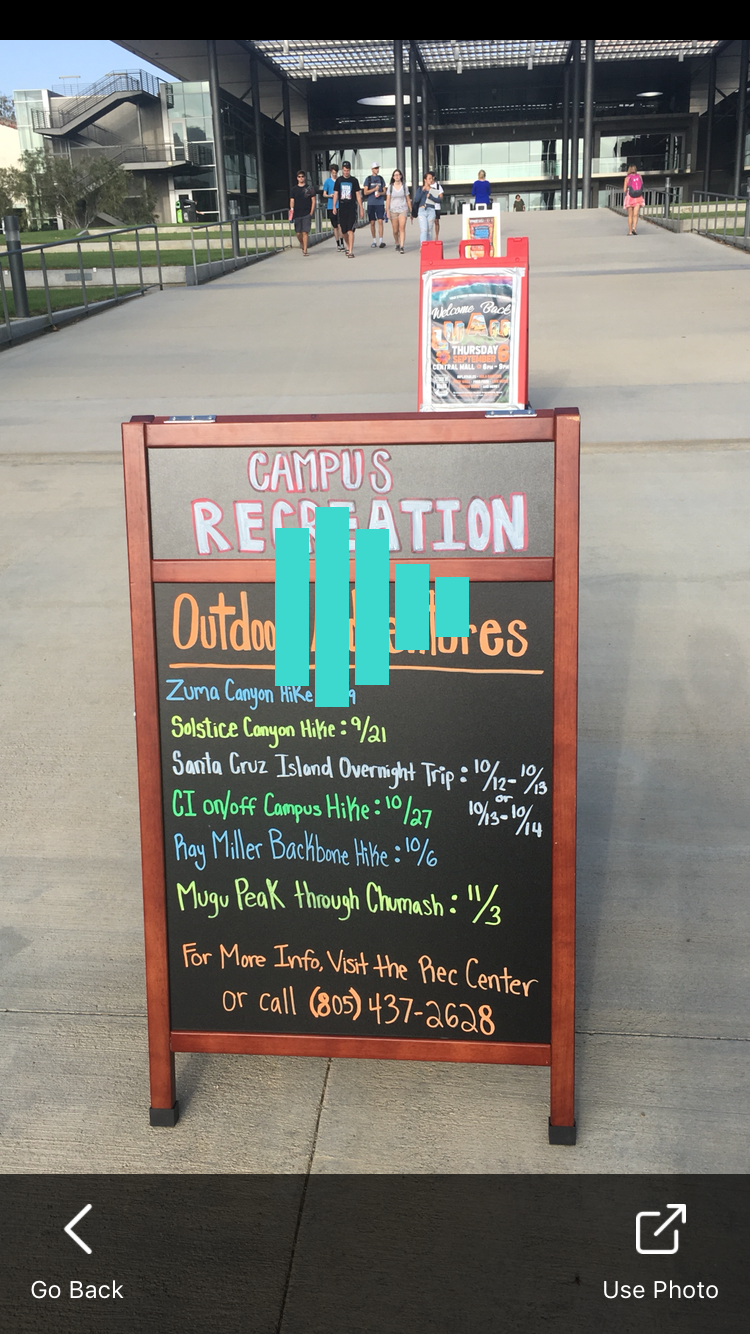 Welcome Back
THURSDAY
SEPTEMBER 6
CENTRAL MALL @ 6PM - 9PM
CAMPUS
RECREATION
Outdoor Adventures
Zuma Canyon Hike
Solstice Canyon Hike : 9/21
Santa Cruz Island Overnight Trip : 10/12 - 10/13
or
10/13 - 10/14
CI on/off Campus Hike : 10/27
Ray Miller Backbone Hike : 10/6
Mugu Peak through Chumash : 11/3
For More Info, Visit the Rec Center
or call (805) 437-2628
Go Back
Use Photo